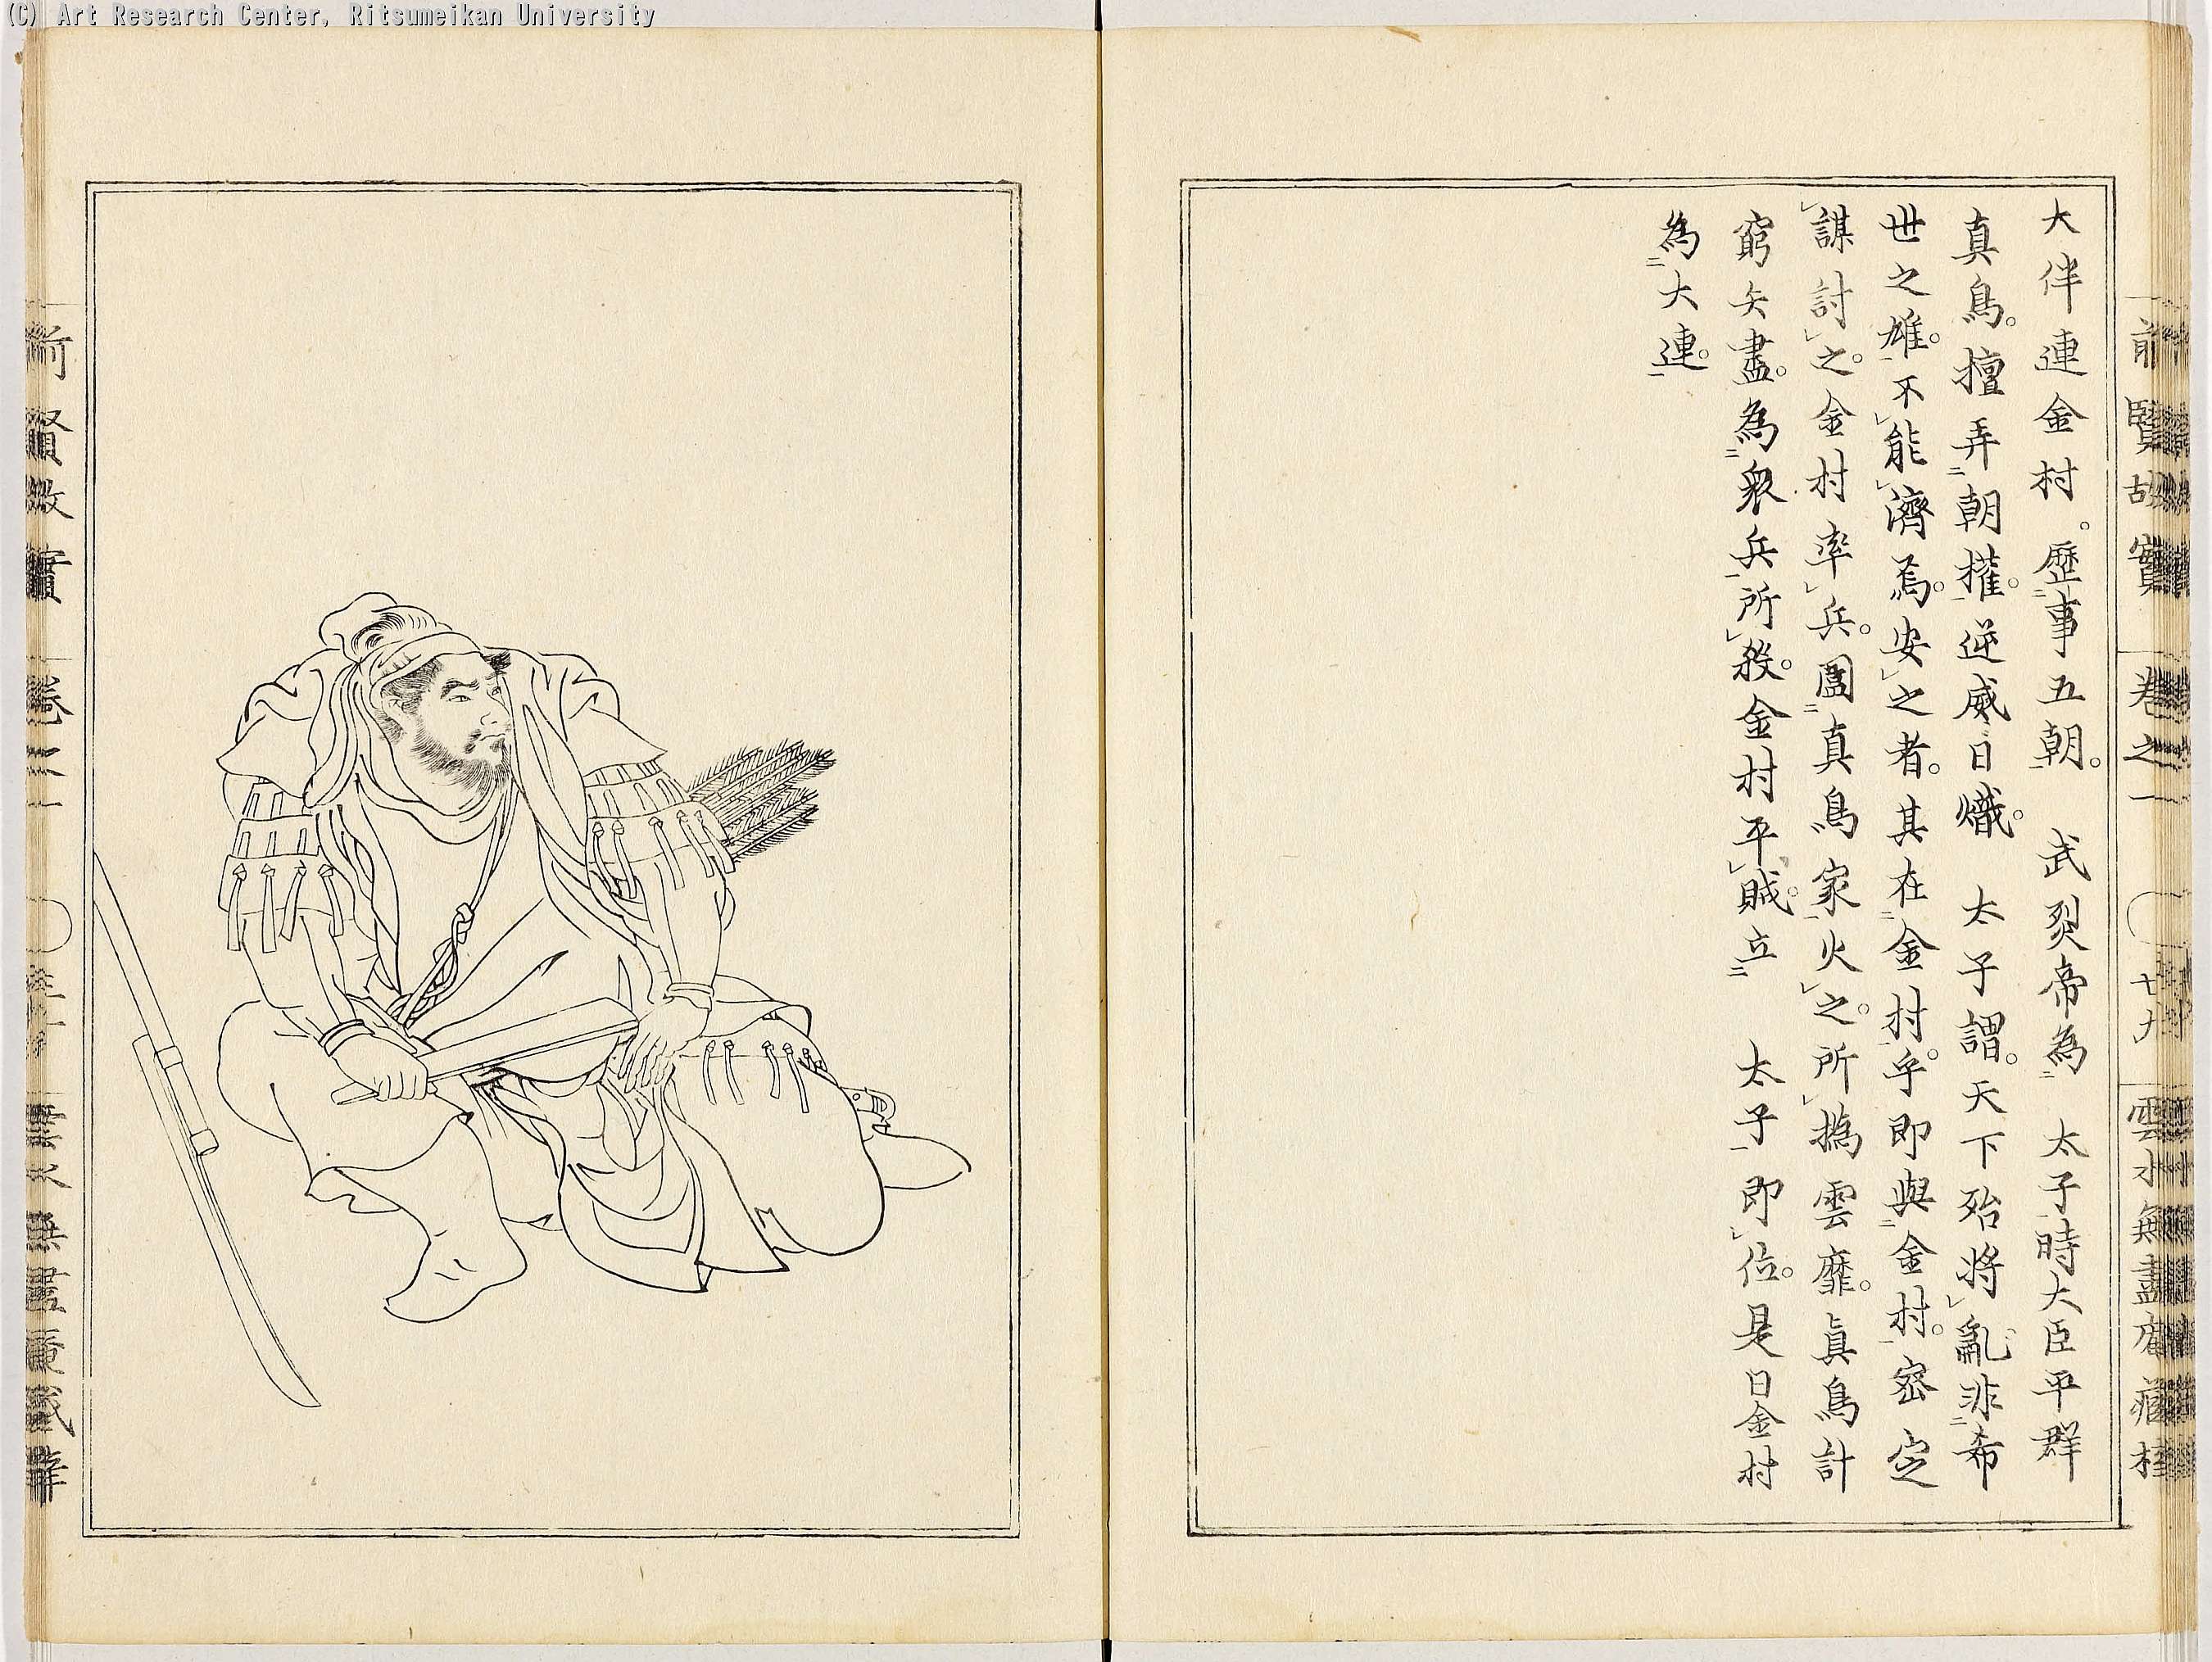 (C) Art Research Center, Ritsumeikan University
前賢故實 卷之一 廿九 雲水無盡庵藏
大伴連金村。歷事五朝。 武烈帝為 太子時大臣平群
真鳥。擅弄朝權。逆威日熾。 太子謂。天下殆將亂非希
世之雄。不能濟焉。安之者。其在金村。乎即與金村。密定
謀討之。金村率兵。圍真鳥家火之。所撝雲靡。眞鳥計
窮矢盡。為衆兵所殺。金村平賊。立 太子即位。是日金村
為大連。